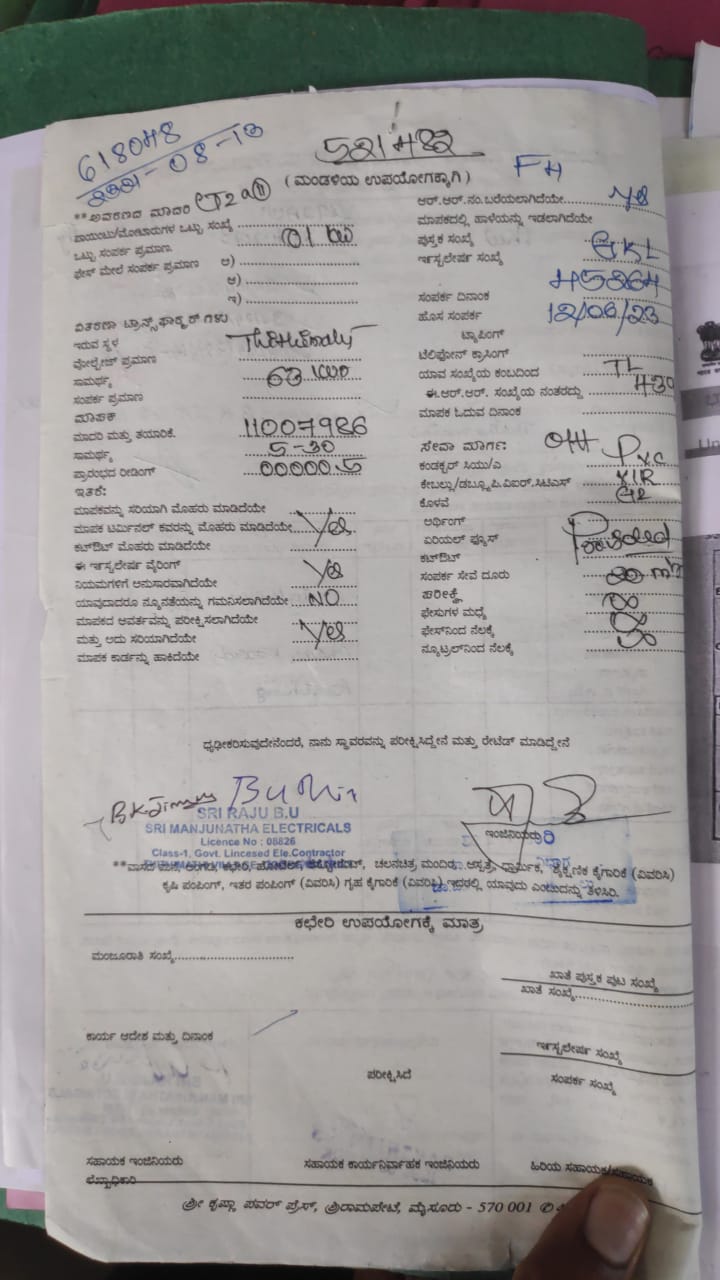 618048
521482
FH
(ಮಂಡಳಿಯ ಉಪಯೋಗಕ್ಕಾಗಿ)
**ಆವರಣದ ಮಾದರಿ
ಪಾಯಿಂಟು/ಮೋಟಾರುಗಳ ಒಟ್ಟು ಸಂಖ್ಯೆ
ಒಟ್ಟು ಸಂಪರ್ಕ ಪ್ರಮಾಣ 01 kw
ಫೇಸ್ ಮೇಲೆ ಸಂಪರ್ಕ ಪ್ರಮಾಣ ಅ)
ಆ)
ಇ)
ವಿತರಣಾ ಟ್ರಾನ್ಸ್‌ಫಾರ್ಮರ್‌ಗಳು
ಇರುವ ಸ್ಥಳ
ವೋಲ್ಟೇಜ್ ಪ್ರಮಾಣ
ಸಾಮರ್ಥ್ಯ 63
ಸಂಪರ್ಕ ಪ್ರಮಾಣ
ಮಾಪಕ
ಮಾದರಿ ಮತ್ತು ತಯಾರಿಕೆ. 11007986
ಸಾಮರ್ಥ್ಯ 5-30
ಪ್ರಾರಂಭದ ರೀಡಿಂಗ್ 00000.5
ಇತರೆ:
ಮಾಪಕವನ್ನು ಸರಿಯಾಗಿ ಮೊಹರು ಮಾಡಿದೆಯೇ
ಮಾಪಕ ಟರ್ಮಿನಲ್ ಕವರನ್ನು ಮೊಹರು ಮಾಡಿದೆಯೇ Yes
ಕಟ್‌ಔಟ್ ಮೊಹರು ಮಾಡಿದೆಯೇ
ಈ ಇನ್ಸ್ಟಲೇಷನ್ ವೈರಿಂಗ್
ನಿಯಮಗಳಿಗೆ ಅನುಸಾರವಾಗಿದೆಯೇ Yes
ಯಾವುದಾದರೂ ನ್ಯೂನತೆಯನ್ನು ಗಮನಿಸಲಾಗಿದೆಯೇ NO
ಮಾಪಕದ ಆವರ್ತವನ್ನು ಪರೀಕ್ಷಿಸಲಾಗಿದೆಯೇ
ಮತ್ತು ಅದು ಸರಿಯಾಗಿದೆಯೇ Yes
ಮಾಪಕ ಕಾರ್ಡನ್ನು ಹಾಕಿದೆಯೇ
ಆರ್.ಆರ್.ನಂ.ಬರೆಯಲಾಗಿದೆಯೇ Yes
ಮಾಪಕದಲ್ಲಿ ಹಾಳೆಯನ್ನು ಇಡಲಾಗಿದೆಯೇ
ಪುಸ್ತಕ ಸಂಖ್ಯೆ
ಇನ್ಸ್ಟಲೇಷನ್ ಸಂಖ್ಯೆ
ಸಂಪರ್ಕ ದಿನಾಂಕ
ಹೊಸ ಸಂಪರ್ಕ 12/06/23
ಟ್ಯಾಪಿಂಗ್
ಟೆಲಿಫೋನ್ ಕ್ರಾಸಿಂಗ್
ಯಾವ ಸಂಖ್ಯೆಯ ಕಂಬದಿಂದ TL
ಈ.ಆರ್.ಆರ್. ಸಂಖ್ಯೆಯ ನಂತರದ್ದು 430
ಮಾಪಕ ಓದುವ ದಿನಾಂಕ
ಸೇವಾ ಮಾರ್ಗ: OH
ಕಂಡಕ್ಟರ್ ಸಿಯು/ಎ Pvc
ಕೇಬಲ್ಲು/ಡಬ್ಲ್ಯೂಪಿ.ವಿಐಆರ್.ಸಿಟಿಎಸ್ VIR
ಕೊಳವೆ
ಅರ್ಥಿಂಗ್
ಏರಿಯಲ್ ಫ್ಯೂಸ್ Provided
ಕಟ್‌ಔಟ್
ಸಂಪರ್ಕ ಸೇವೆ ದೂರು
ಪರೀಕ್ಷೆ
ಫೇಸುಗಳ ಮಧ್ಯೆ
ಫೇಸ್‌ನಿಂದ ನೆಲಕ್ಕೆ
ನ್ಯೂಟ್ರಲ್‌ನಿಂದ ನೆಲಕ್ಕೆ
ಧೃಢೀಕರಿಸುವುದೇನೆಂದರೆ, ನಾನು ಸ್ಥಾವರವನ್ನು ಪರೀಕ್ಷಿಸಿದ್ದೇನೆ ಮತ್ತು ರೇಟೆಡ್ ಮಾಡಿದ್ದೇನೆ
SRI RAJU B.U
SRI MANJUNATHA ELECTRICALS
Licence No : 08826
Class-1, Govt. Lincesed Ele.Contractor
ಇಂಜಿನಿಯರು
**ವಾಸದ ಮನೆ, ಅಂಗಡಿ, ಕಛೇರಿ, ಹೋಟೆಲ್, ಚಲನಚಿತ್ರ ಮಂದಿರ, ಆಸ್ಪತ್ರೆ, ಧಾರ್ಮಿಕ, ಶೈಕ್ಷಣಿಕ ಕೈಗಾರಿಕೆ (ವಿವರಿಸಿ)
ಕೃಷಿ ಪಂಪಿಂಗ್, ಇತರ ಪಂಪಿಂಗ್ (ವಿವರಿಸಿ) ಗೃಹ ಕೈಗಾರಿಕೆ (ವಿವರಿಸಿ) ಇದರಲ್ಲಿ ಯಾವುದು ಎಂಬುದನ್ನು ತಿಳಿಸಿರಿ.
ಕಛೇರಿ ಉಪಯೋಗಕ್ಕೆ ಮಾತ್ರ
ಮಂಜೂರಾತಿ ಸಂಖ್ಯೆ
ಖಾತೆ ಪುಸ್ತಕ ಪುಟ ಸಂಖ್ಯೆ
ಖಾತೆ ಸಂಖ್ಯೆ
ಕಾರ್ಯ ಆದೇಶ ಮತ್ತು ದಿನಾಂಕ
ಇನ್ಸ್ಟಲೇಷನ್ ಸಂಖ್ಯೆ
ಪರೀಕ್ಷಿಸಿದೆ
ಸಂಪರ್ಕ ಸಂಖ್ಯೆ
ಸಹಾಯಕ ಇಂಜಿನಿಯರು
ಸಹಾಯಕ ಕಾರ್ಯನಿರ್ವಾಹಕ ಇಂಜಿನಿಯರು
ಹಿರಿಯ ಸಹಾಯಕ/ಸಹಾಯಕ
ಲೆಖ್ಖಾಧಿಕಾರಿ
ಶ್ರೀ ಕೃಷ್ಣಾ ಪವರ್ ಪ್ರೆಸ್, ಶ್ರೀರಾಮಪೇಟೆ, ಮೈಸೂರು - 570 001